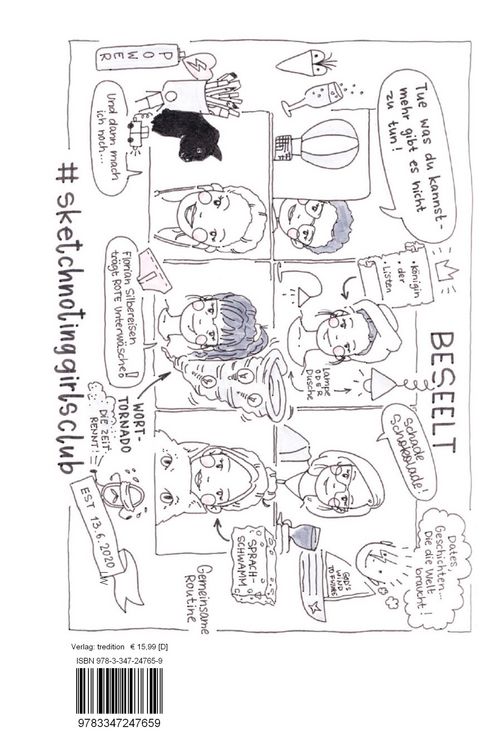 POWER
Und dann mach
ich noch...
Tue was du kannst-
mehr gibt es nicht
zu tun!
# sketchnotinggirlsclub
Florian Silbereisen
trägt ROTE Unterwäsche!
• Königin
• der
Listen
BESEELT
Lampe
ODER
Dusche
WORT-
TORNADO
DIE ZEIT
RENNT!
Schade
Schokolade!
EST 13.6.2020
SPRACH-
SCHWAMM
Gemeinsame
Routine
Dates,
Geschichten...
Die die Welt
braucht!
Verlag: tredition € 15,99 [D]
ISBN 978-3-347-24765-9
9783347247659